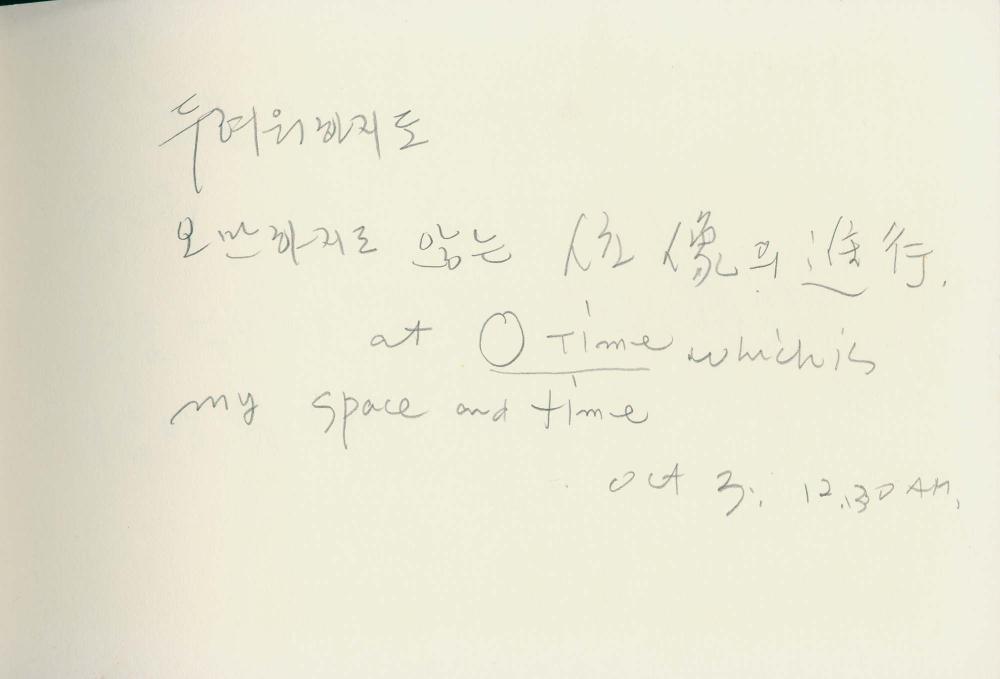 두려워하지도
오만하지도 않는 位像의 進行.
at O Time which is
my space and time
oct 3. 12.30 AM.